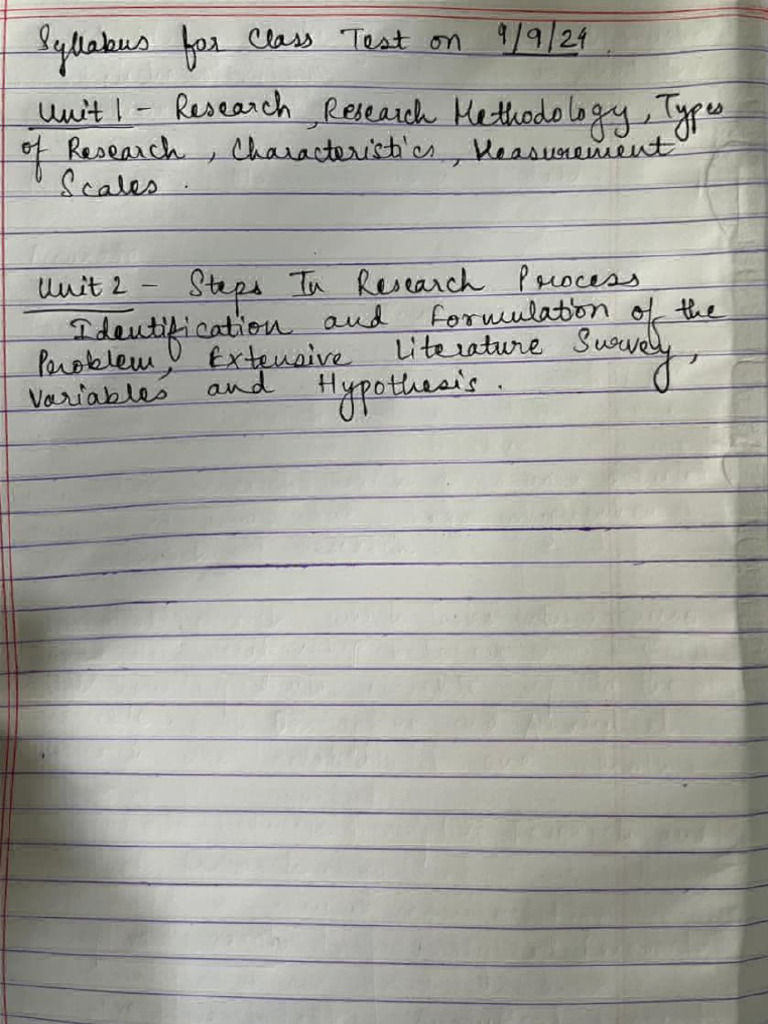 Syllabus for Class Test on 9/9/24.
Unit 1 - Research, Research Methodology, Types
of Research, Characteristics, Measurement
Scales.
Unit 2 - Steps In Research Process
Identification and Formulation of the
Problem, Extensive Literature Survey,
Variables and Hypothesis.